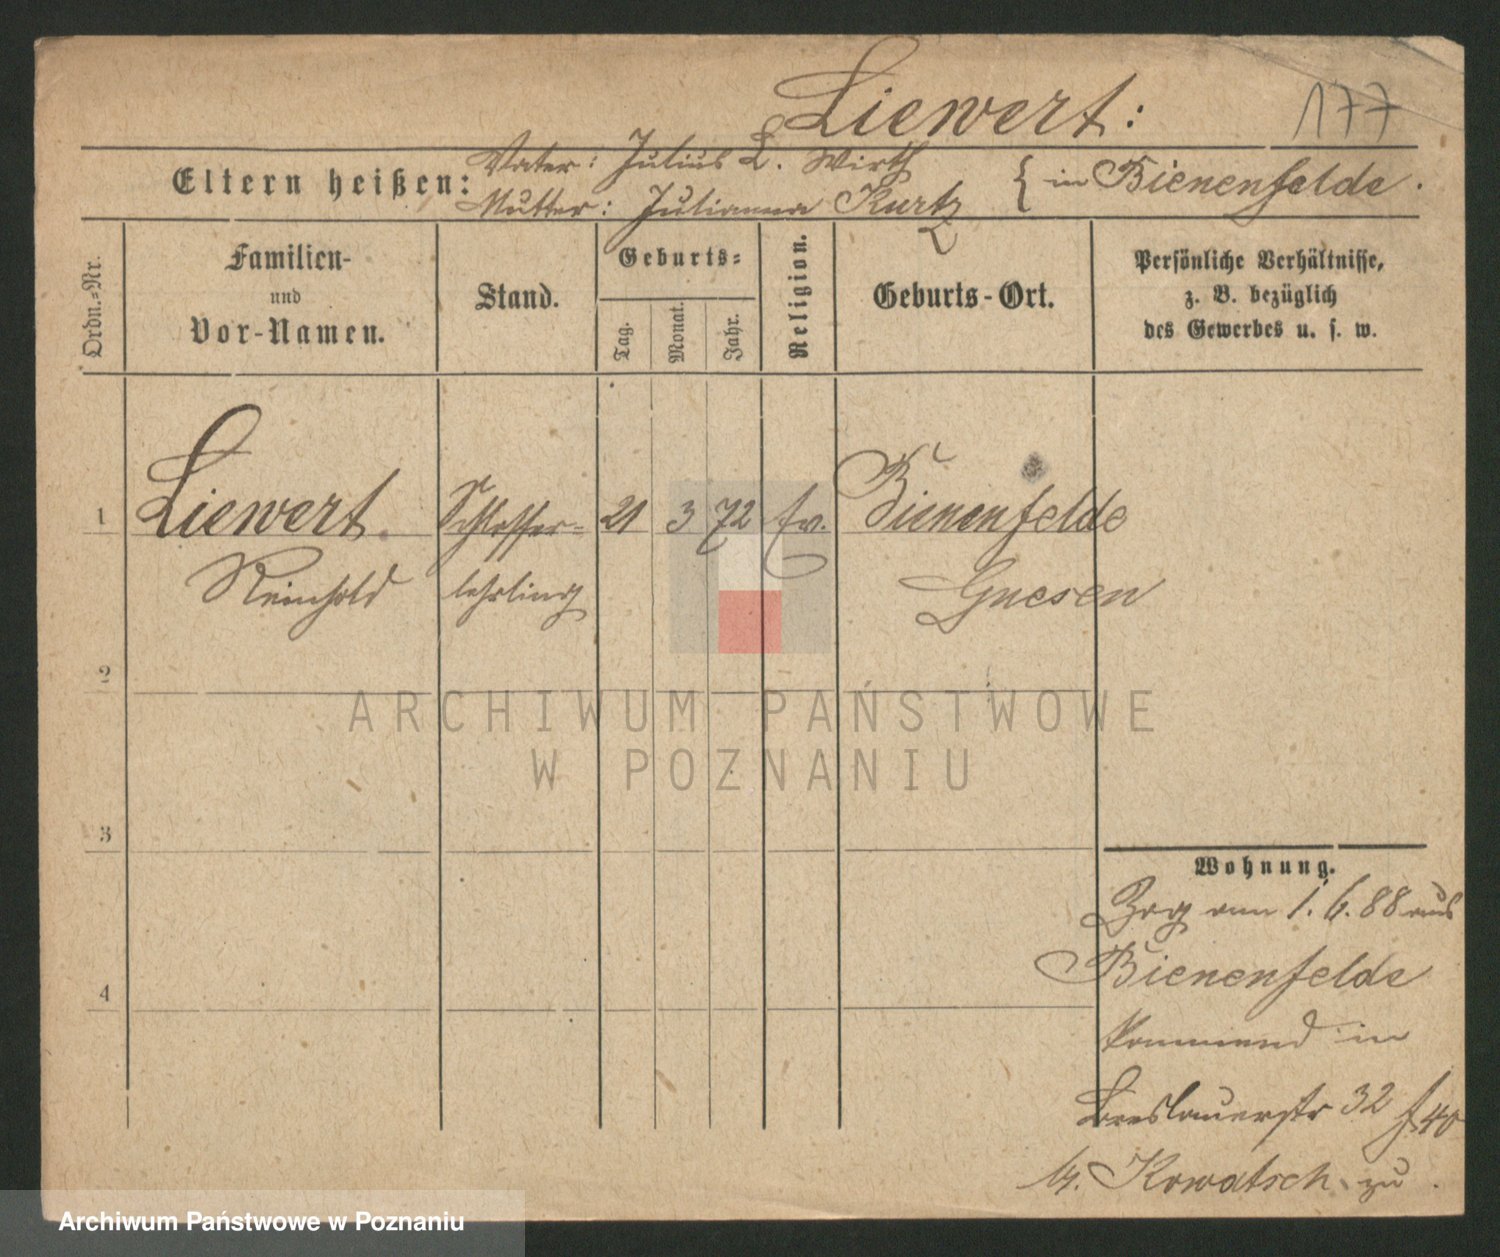 Liewert:
177
Eltern heißen:
Vater: Julius L. Wirth
Mutter: Julianna Kurtz
{ in Bienenfelde.
Ordn.=Nr.
Familien-
und
Vor-Namen.
Stand.
Geburts=
Tag.
Monat.
Jahr.
Religion.
Geburts-Ort.
Persönliche Verhältnisse,
z. B. bezüglich
des Gewerbes u. s. w.
1 Liewert Schlosser= 21 3 72 ev. Bienenfelde
Reinhold lehrling Gnesen
2
3
4
ARCHIWUM PAŃSTWOWE
W POZNANIU
Wohnung.
Zog am 1. 6. 88 aus
Bienenfelde
kommend in
Breslauerstr 32
Kowatsch zu.
Archiwum Państwowe w Poznaniu